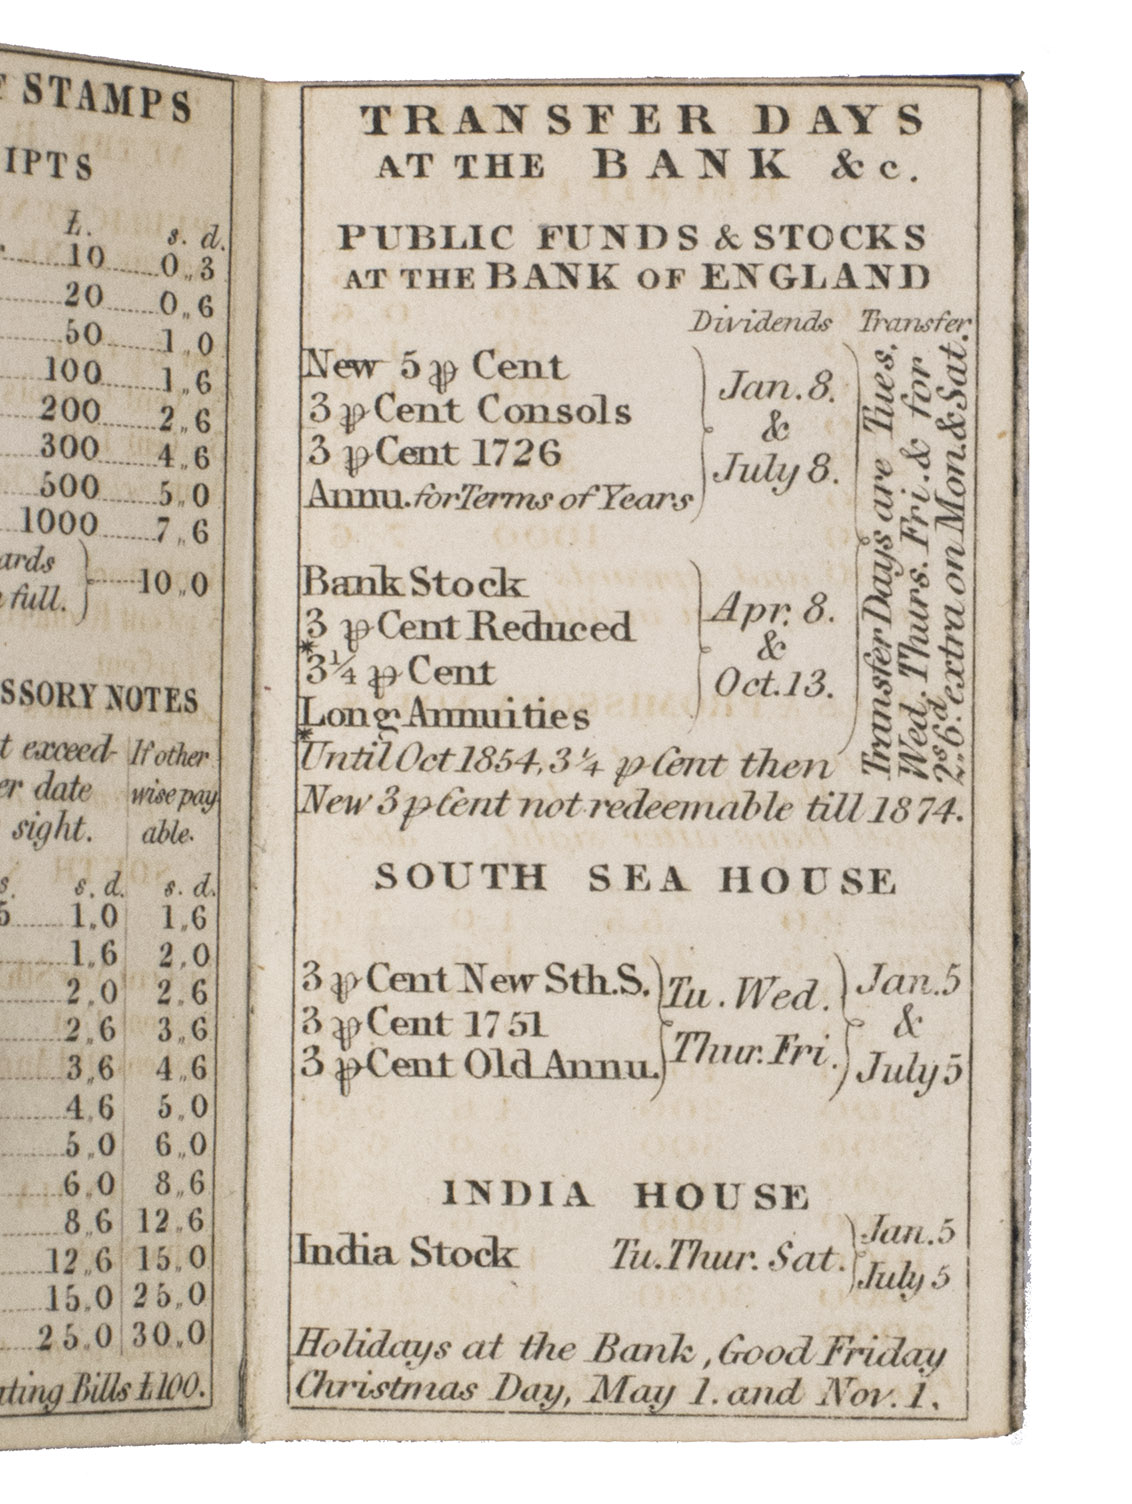 F STAMPS
IPTS
£. s. d.
10 0,,3
20 0,,6
50 1,,0
100 1,,6
200 2,,6
300 4,,6
500 5,,0
1000 7,,6
ards
full. 10,,0
SSORY NOTES
t exceed-
er date
sight.
If other
wise pay
able.
s. s. d. s. d.
5 1,,0 1,,6
1,,6 2,,0
2,,0 2,,6
2,,6 3,,6
3,,6 4,,6
4,,6 5,,0
5,,0 6,,0
6,,0 8,,6
8,,6 12,,6
12,,6 15,,0
15,,0 25,,0
25,,0 30,,0
ting Bills £100.
TRANSFER DAYS
AT THE BANK &c.
PUBLIC FUNDS & STOCKS
AT THE BANK OF ENGLAND
Dividends Transfer
New 5 ⅌ Cent
3 ⅌ Cent Consols
3 ⅌ Cent 1726
Annu. for Terms of Years
Jan. 8.
&
July 8.
Bank Stock
3 ⅌ Cent Reduced
*3¼ ⅌ Cent
Long Annuities
Apr. 8.
&
Oct. 13.
Transfer Days are Tues.
Wed. Thurs. Fri. & for
2s 6d. extra on Mon. & Sat.
*Until Oct 1854, 3¼ ⅌ Cent then
New 3 ⅌ Cent not redeemable till 1874.
SOUTH SEA HOUSE
3 ⅌ Cent New Sth. S.
3 ⅌ Cent 1751
3 ⅌ Cent Old Annu.
Tu. Wed.
Thur. Fri.
Jan. 5
&
July 5
INDIA HOUSE
India Stock Tu. Thur. Sat.
Jan. 5
July 5
Holidays at the Bank, Good Friday
Christmas Day, May 1. and Nov. 1.